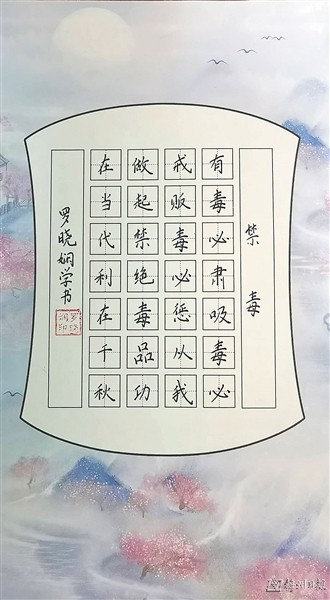 禁毒
有毒必肃吸毒必
戒贩毒必惩从我
做起禁绝毒品功
在当代利在千秋
罗晓娴学书